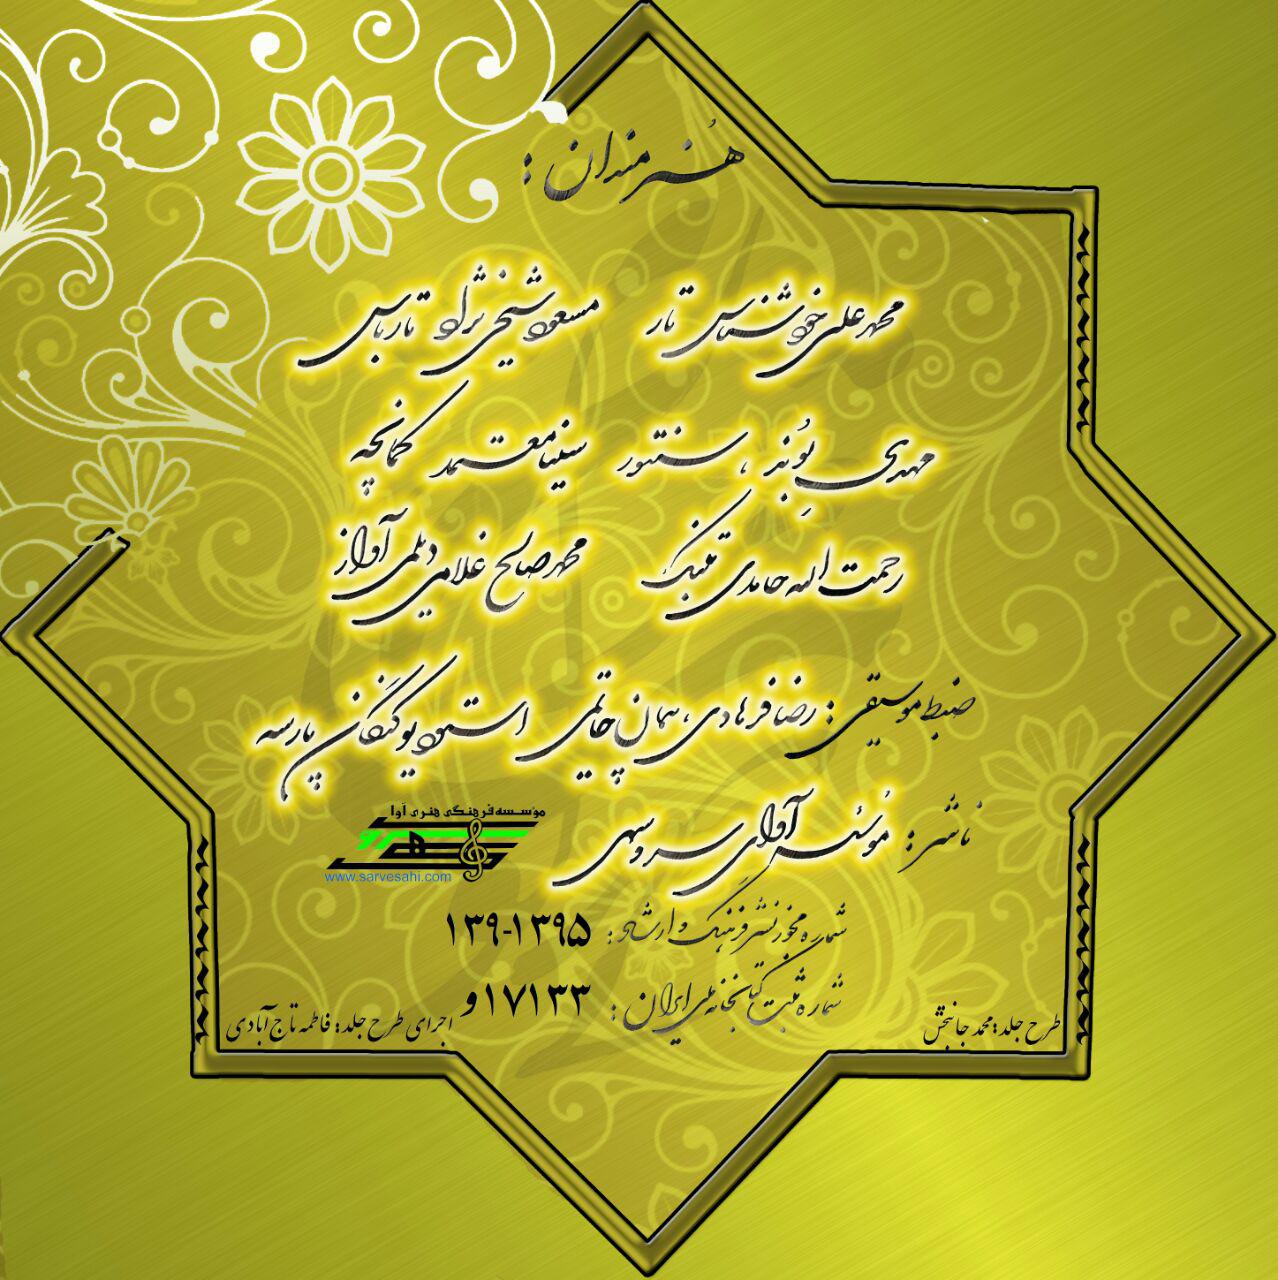 هنرمندان :
محمد علی خودشناس تار
مسعود شیخی نژاد تار باس
مهدی نوبند ، سنتور
سینا معتمد کمانچه
رحمت الله حامدی تمبک
محمد صالح غلامی دیلمی آواز
ضبط موسیقی : رضا فرهادی ، پیمان حاتمی استودیو کنگان پارسه
ناشر : موسس آوای سرو سهی
مؤسسه فرهنگی هنری آوا
سرو سهی
www.sarvesahi.com
شماره مجوز نشر فرهنگ و ارشاد : ۱۳۹۵-۱۳۹
شماره ثبت کتابخانه ملی ایران : ۱۷۱۳۳و
طرح جلد : محمد جانبخش
اجرای طرح جلد : فاطمه تاج آبادی